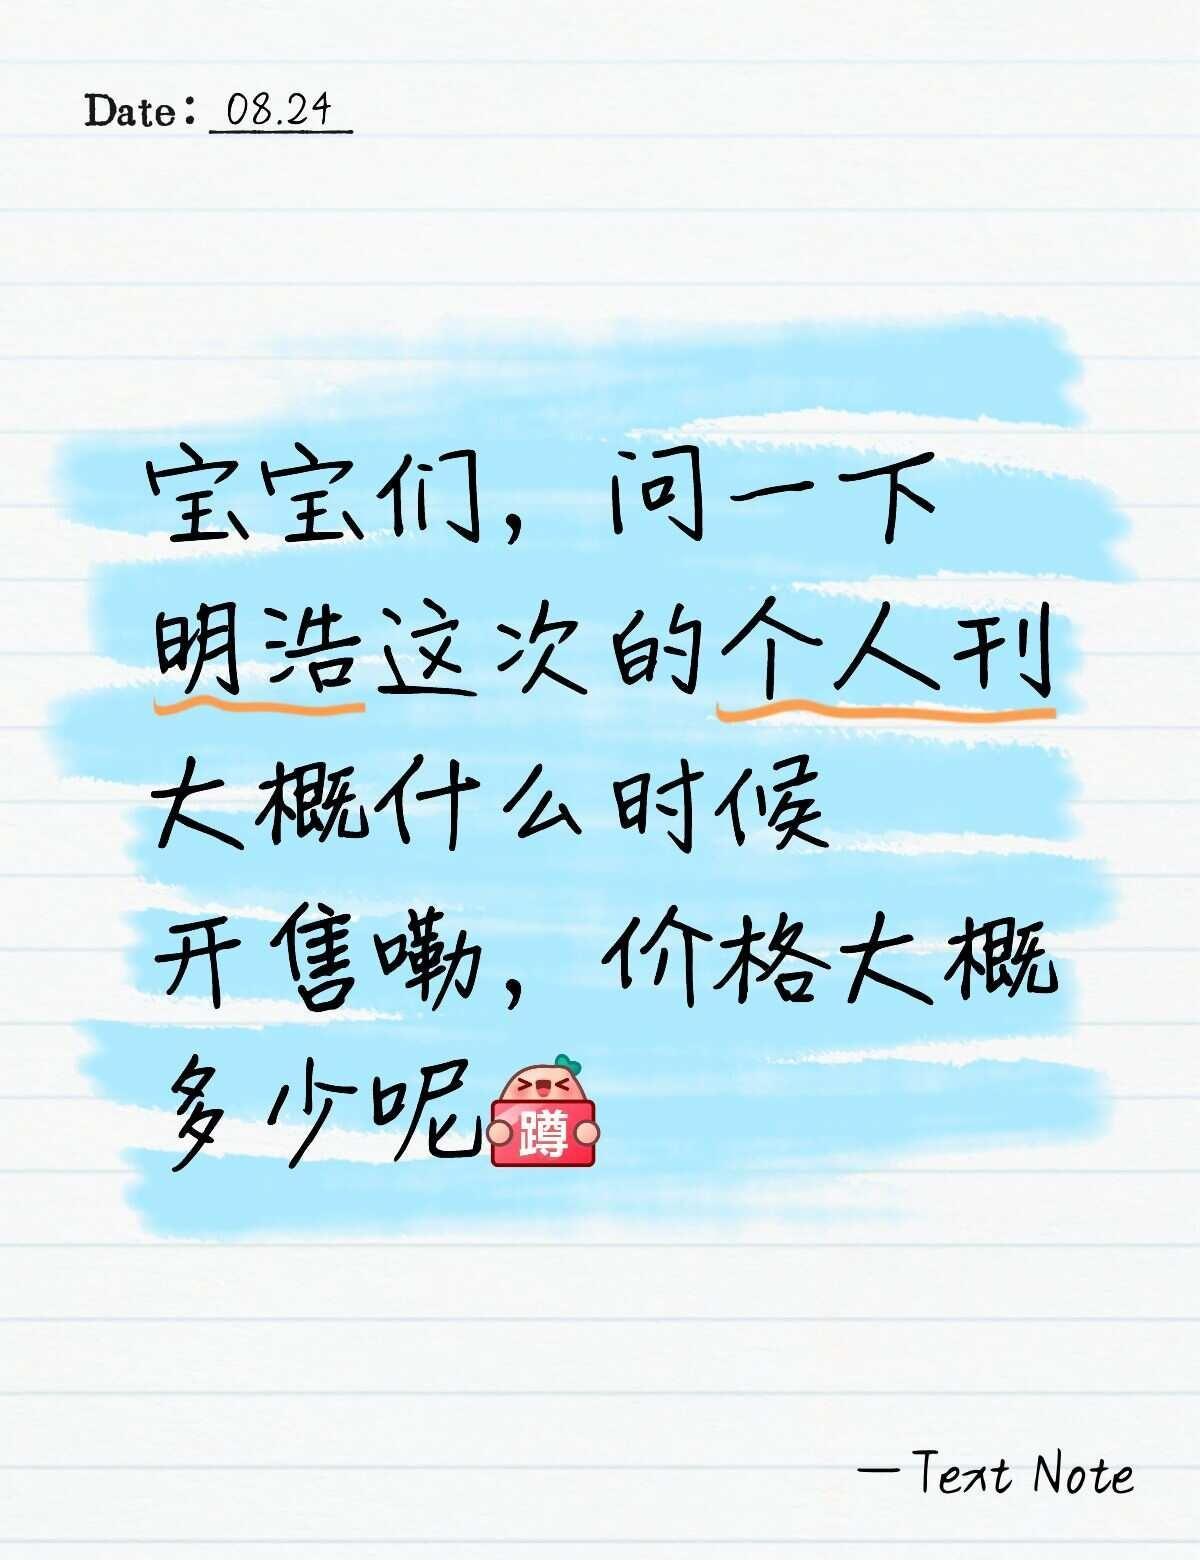 Date: 08.24
宝宝们，问一下
明浩这次的个人刊
大概什么时候
开售嘞，价格大概
多少呢
蹲
—Text Note